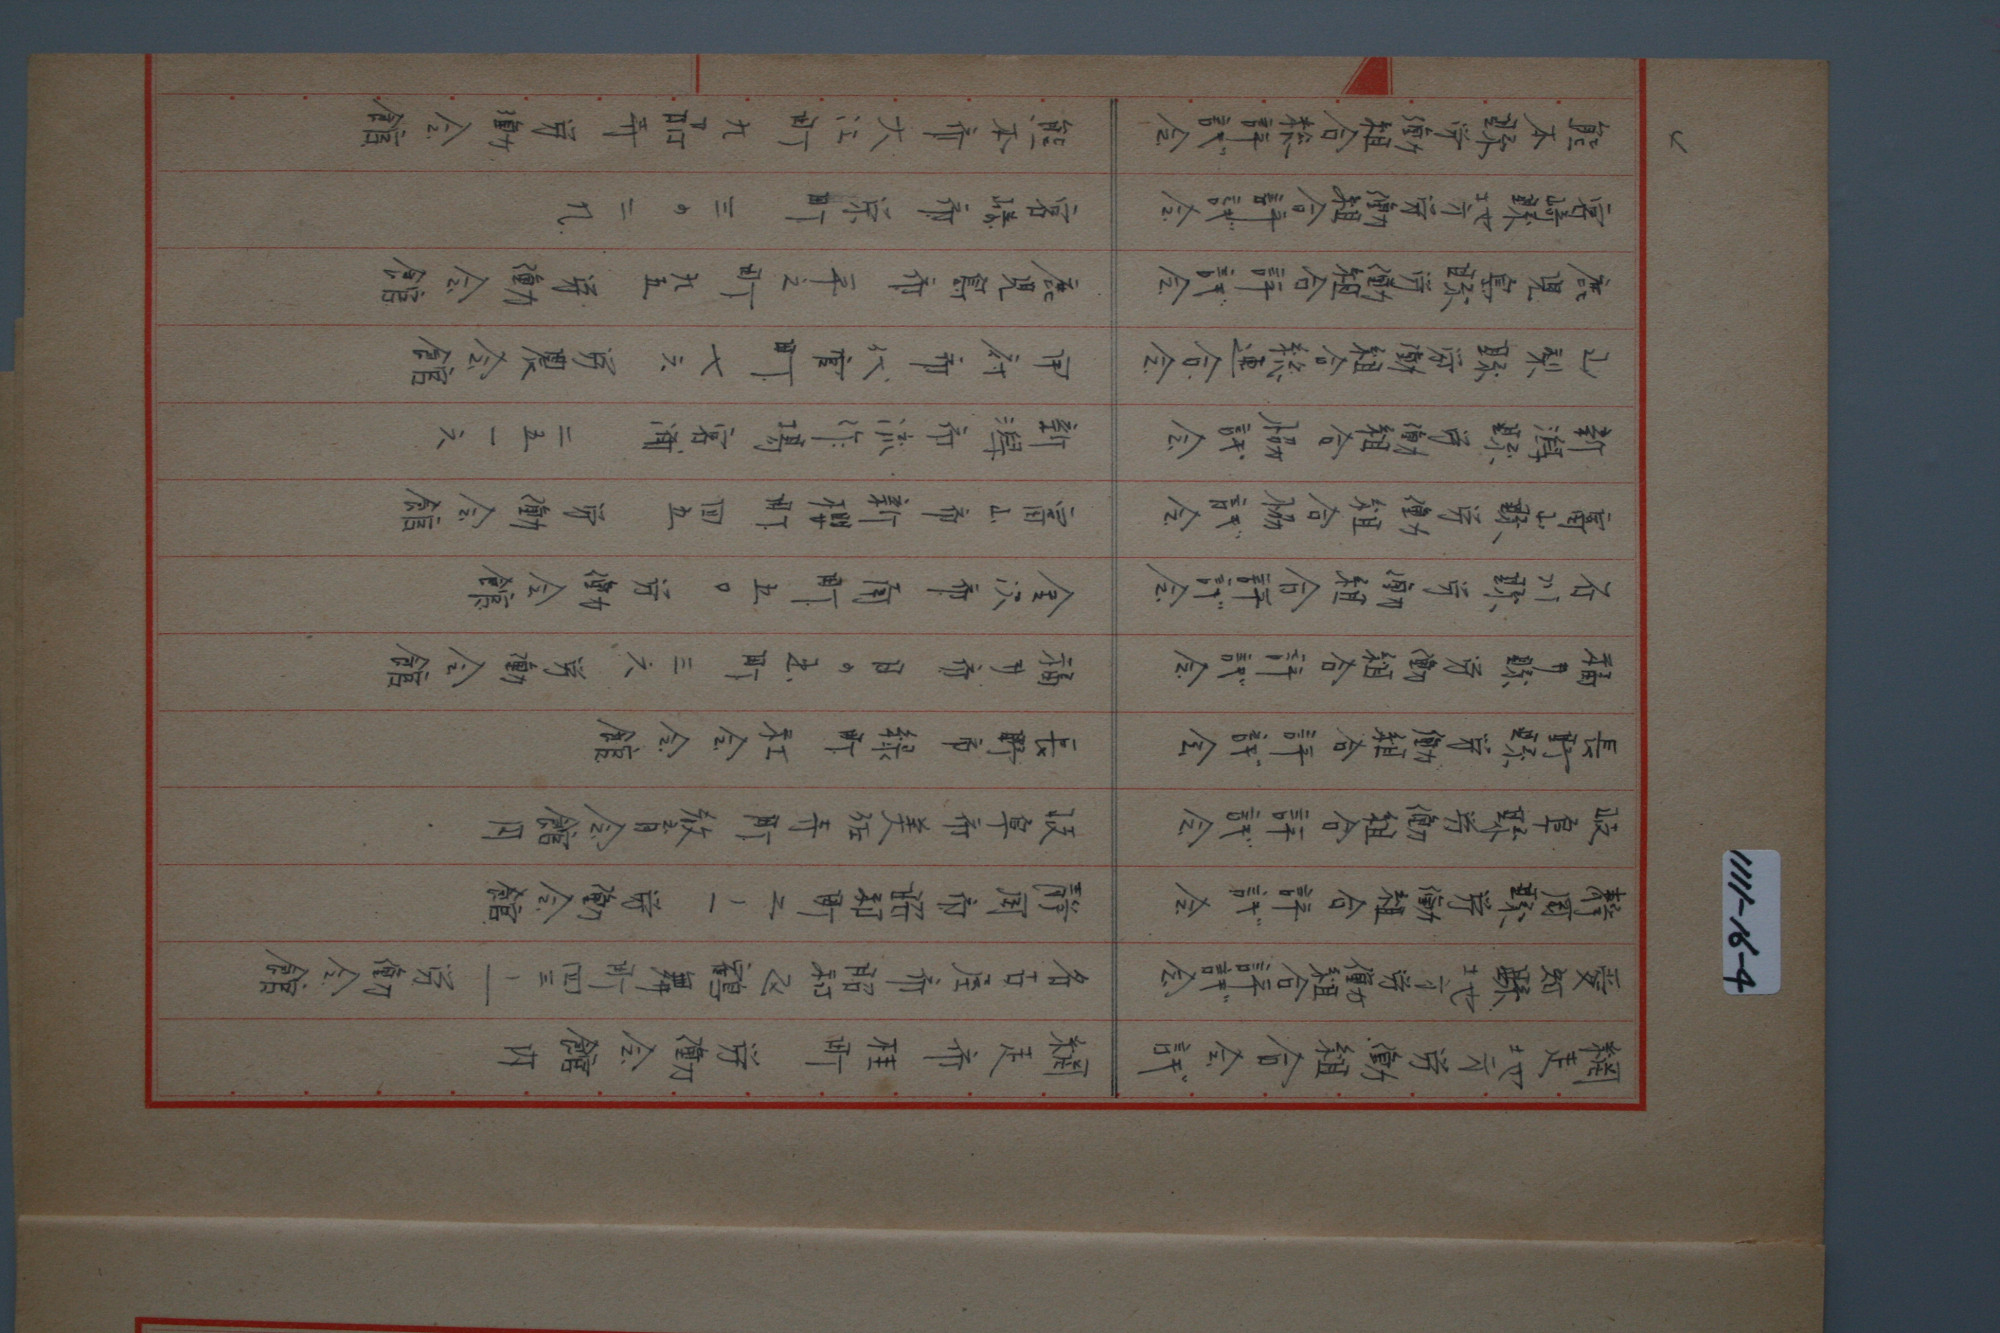 網走地方労働組合会議 網走市桂町 労働会館内
愛知縣地方労働組合評議会 名古屋市昭和区鶴舞町四三ノ一 労働会館
静岡縣労働組合評議会 静岡市昭和町二ノ一 労働会館
岐阜縣労働組合評議会 岐阜市美江寺町 教育会館内
長野縣労働組合評議会 長野市縣町 社会会館
福井縣労働組合評議会 福井市日の出町三六 労働会館
石川縣労働組合評議会 金沢市南町五〇 労働会館
富山縣労働組合協議会 富山市新桜町四五 労働会館
新潟縣労働組合協議会 新潟市流作場宮浦 二五一六
山梨縣労働組合総連合会 甲府市代官町七六 労農会館
鹿児島縣労働組合評議会 鹿児島市平之町九五 労働会館
宮崎縣地方労働組合評議会 宮崎市栄町 三の二九
熊本縣労働組合総評議会 熊本市大江町九品寺 労働会館
1111-16-4